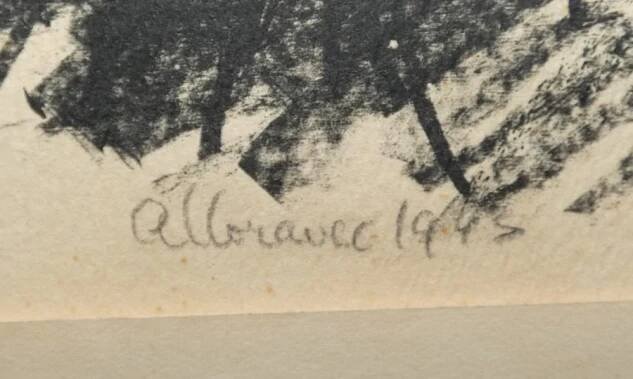 AMoravec 1943